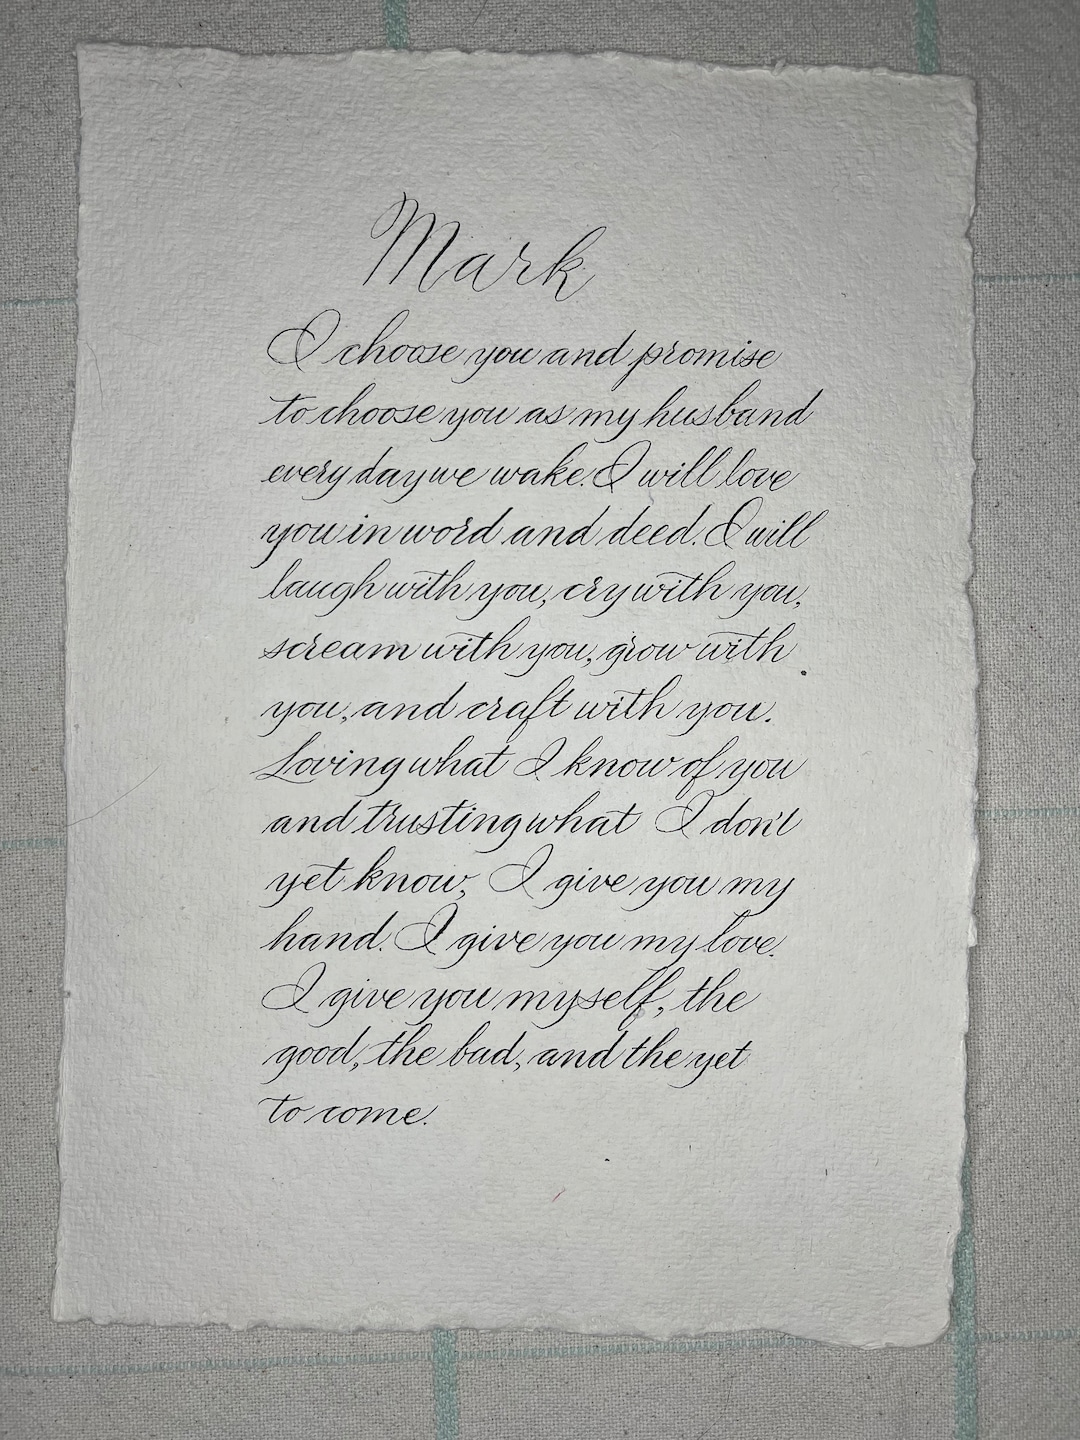 Mark
I choose you and promise
to choose you as my husband
every day we wake. I will love
you in word and deed. I will
laugh with you, cry with you,
scream with you, grow with
you, and craft with you.
Loving what I know of you
and trusting what I don't
yet know, I give you my
hand. I give you my love.
I give you myself, the
good, the bad, and the yet
to come.